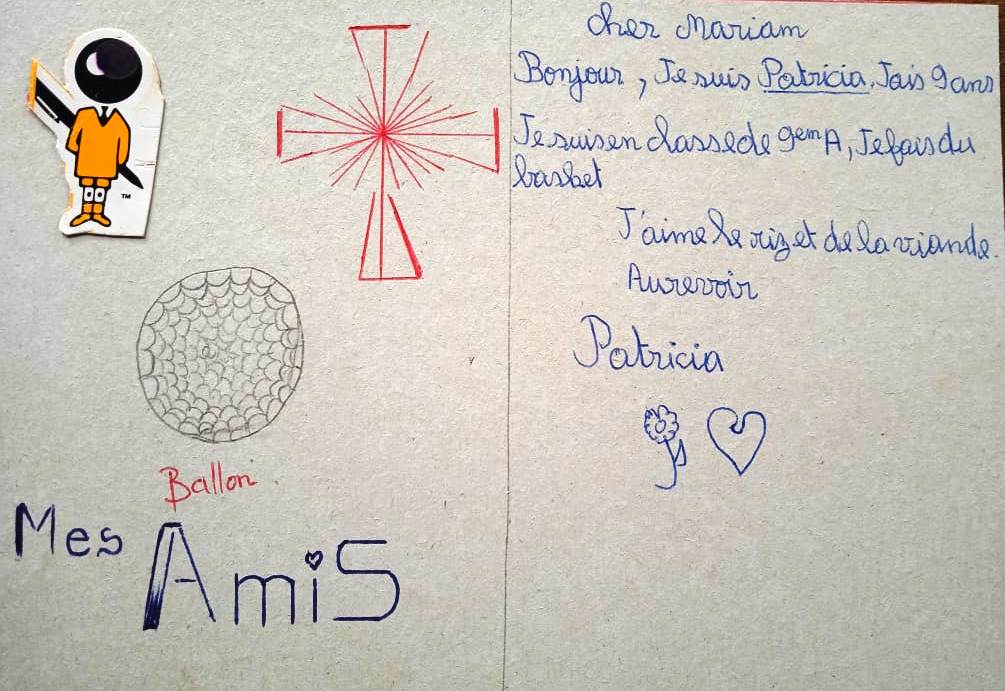 TM
Ballon
Mes AmiS
cher Mariam
Bonjour, Je suis Patricia. Jais 9 ans
Je suis en classe de 9em A, Je fais du
basket
J'aime le riz et de la viande.
Aurevoir
Patricia